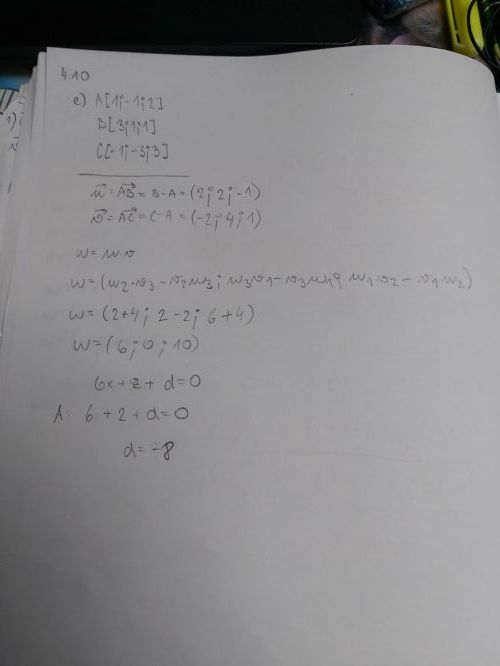 410
c) A[1;-1;2]
B[3;1;1]
C[-1;-3;3]
u⃗=AB⃗=B-A=(2;2;-1)
v⃗=AC⃗=C-A=(-2;4;1)
w=u·v
w=(u2·v3-v2u3; u3v1-v3u1; u1v2-v1u2)
w=(2+4; 2-2; 6+4)
w=(6;0;10)
6x+z+d=0
A: 6+2+d=0
d=-8